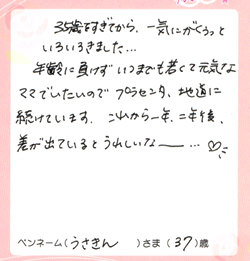 35歳をすぎてから、一気にがくっと
いろいろきました…
年齢に負けず いつまでも若くて元気な
ママでいたいので プラセンタ、地道に
続けています。これから一年、二年後、
差が出ているとうれしいなー…♡
ペンネーム(うさきん )さま(37)歳